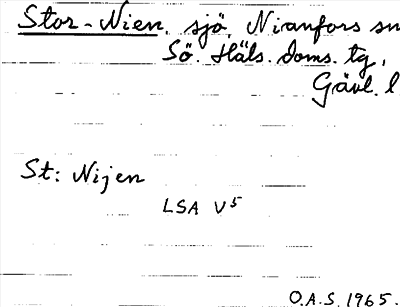 Stor-Nien, sjö, Nianfors sn
Sö. Häls. doms. tg,
Gävl. l
St: Nijen
LSA V5
O.A.S. 1965.